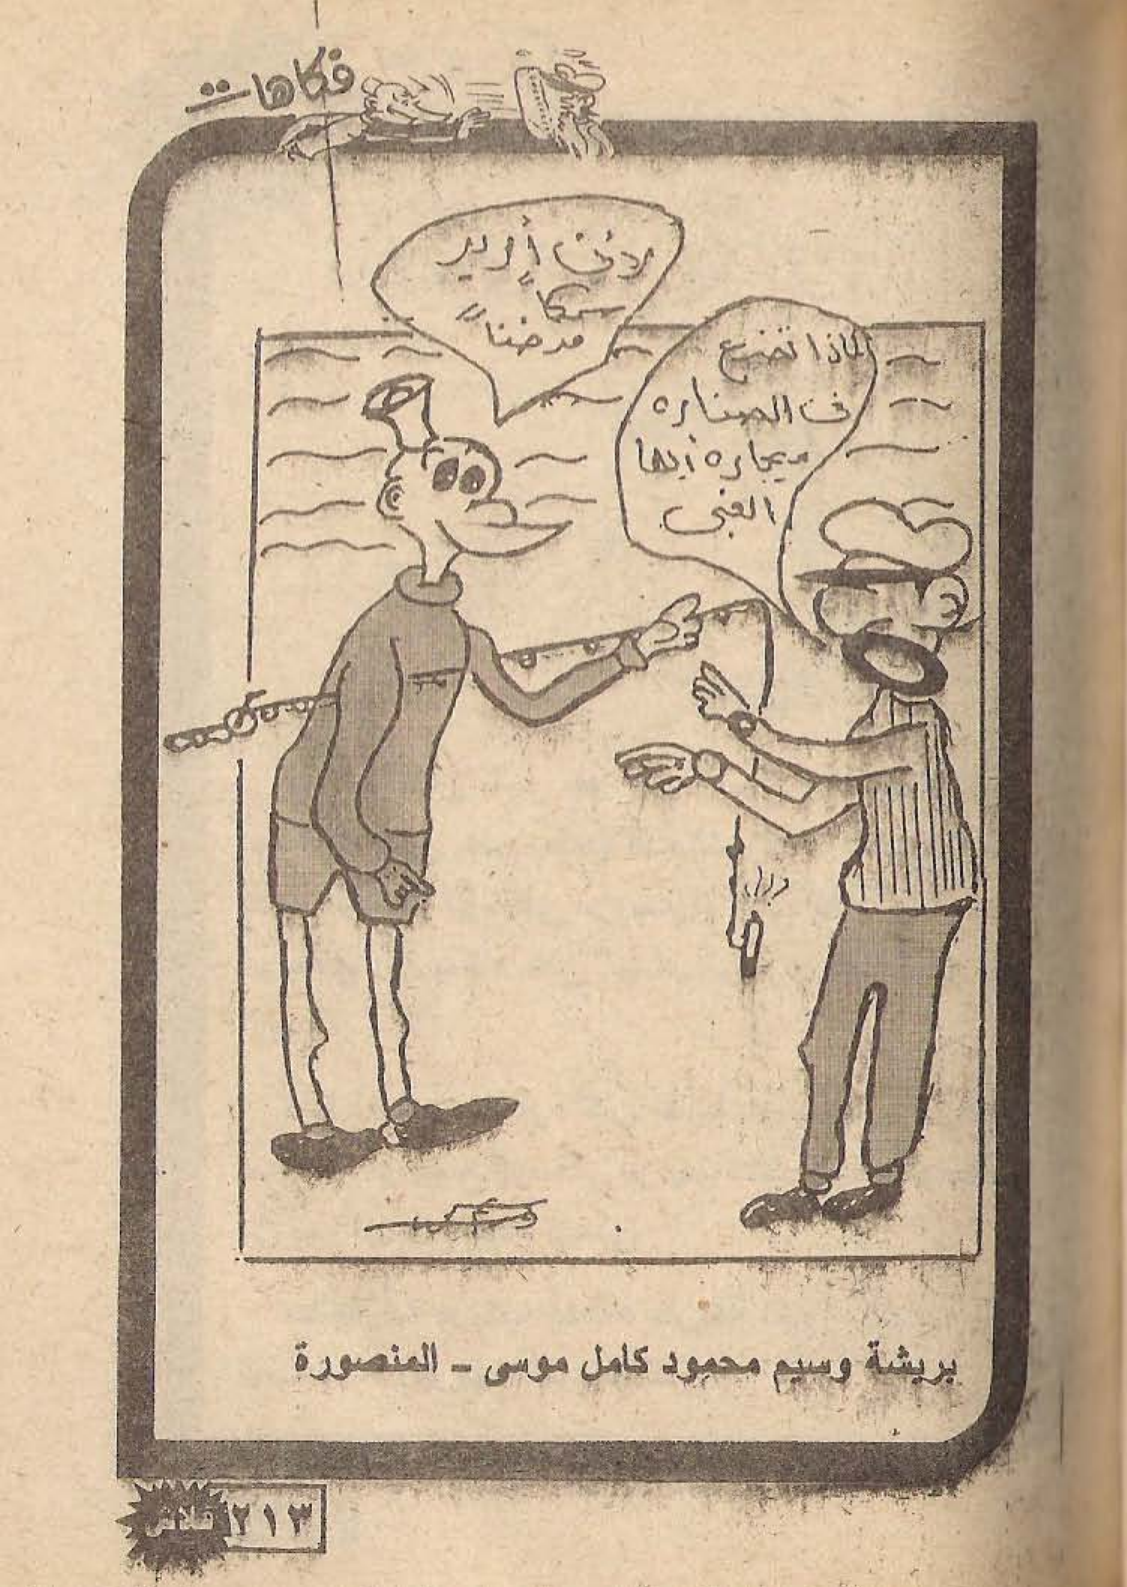 فكاهات
لماذا تضع
فى الصناره
سيجاره أيها
الغبى
لأنى أريد
سمكاً
مدخناً
بريشة وسيم محمود كامل موسى - المنصورة
٢١٣
فلاش